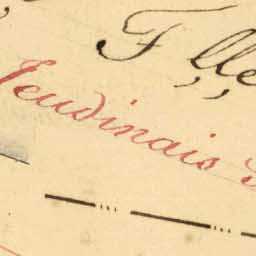 F,,lle
Jeudinais